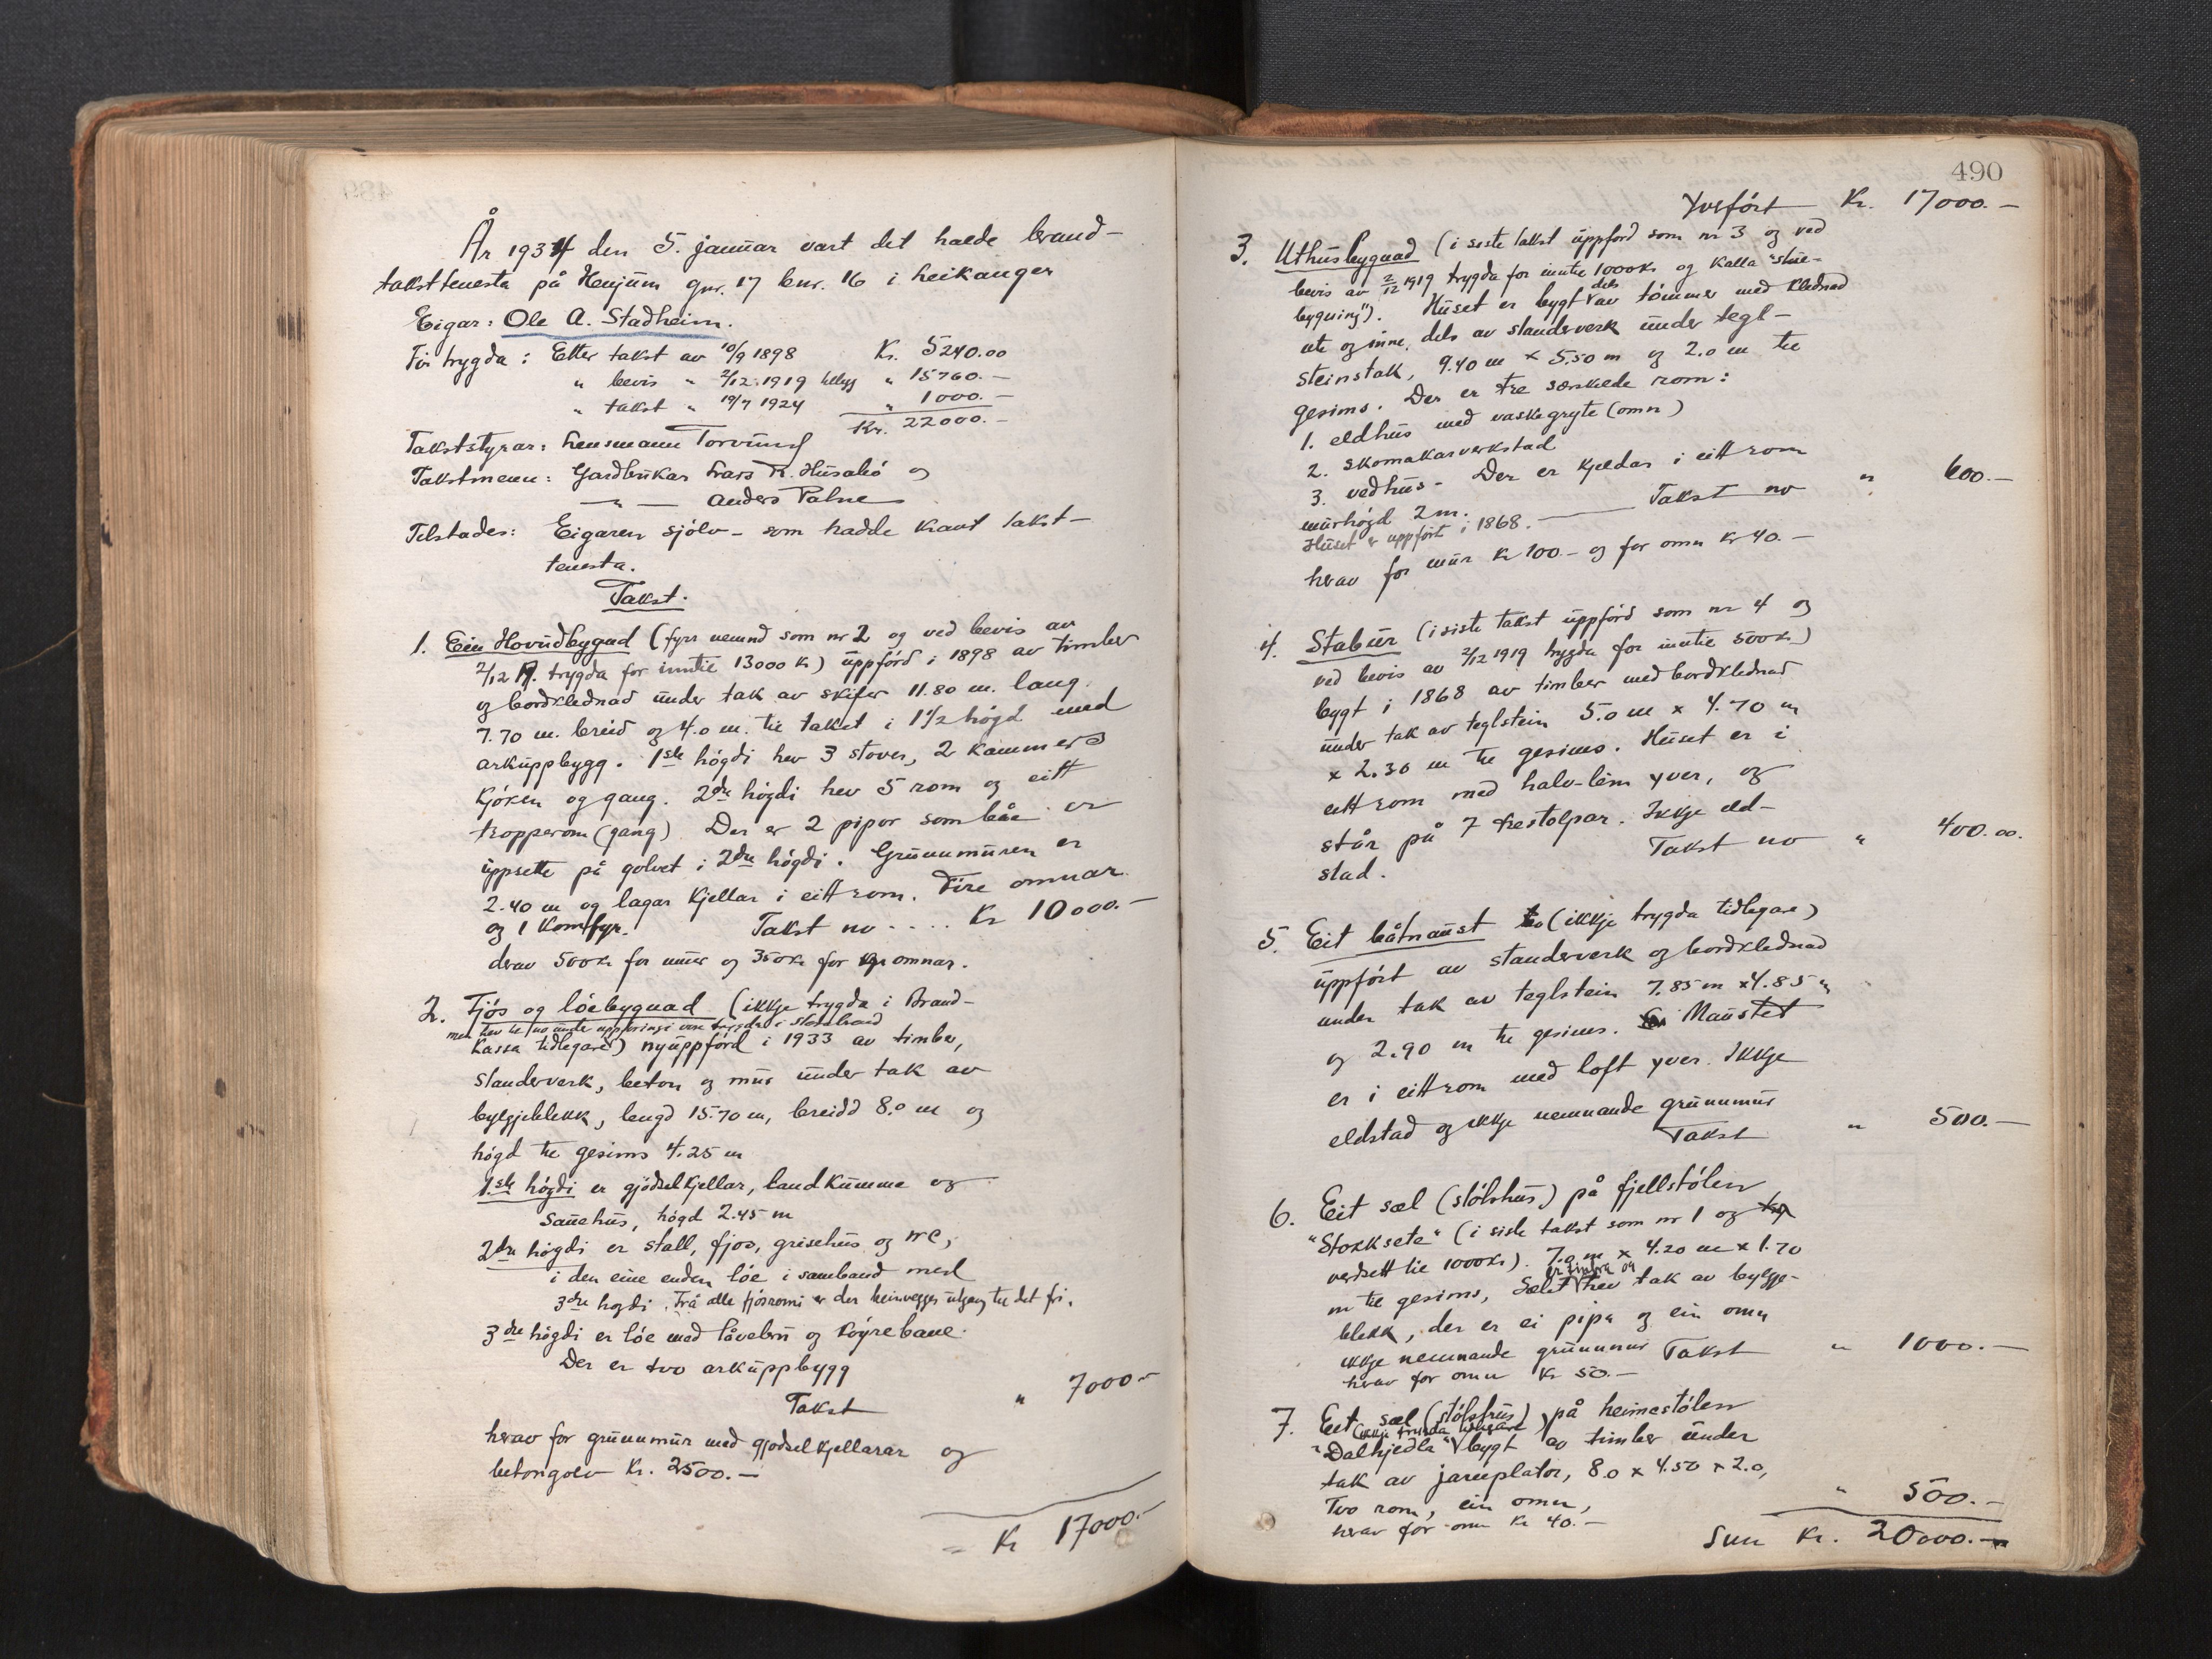 År 1934 den 5. januar vart det halde brand-
taksttenesta på Henjum gnr. 17 bnr. 16 i Leikanger
Eigar: Ole A. Stadheim.
Fôr trygda: Etter takst av 10/9 1898 Kr. 5240.00
" bevis " 2/12 1919 tillegg " 15760.-
" takst " 19/7 1924 " 1000.-
Kr. 22000.-
Takststyrar: Lensmann Torvund
Takstmenn: Gardbrukar Lars R. Husabó og
— " — Anders Palne
Tilstades: Eigaren sjólv - som hadde kravt takst-
tenesta.
Takst.
1. Ein Hovudbygnad (fyrr nemnd som nr 2 og ved bevis av
2/12 19. trygda for inntil 13000 kr) uppförd i 1898 av timber
og bordklednad under tak av skifer 11.80 m. lang
7.70 m. breid og 4.0 m. til taket i 1 1/2 högd med
arkuppbygg. 1ste högdi hev 3 stover, 2 kammers
kjöken og gang. 2dre högdi hev 5 rom og eitt
tropperom (gang) Der er 2 pipor som båe er
uppsette på golvet i 2dre högdi. Grunnmuren er
2.40 m og lagar kjellar i eitt rom. Fire omnar
og 1 komfyr. Takst no .... Kr 10000.-
derav 500 kr for mur og 350 kr for omnar.
2. Fjós og lóebygnad (ikkje trygda i Brand-
men hev no under uppbringi vore trygda i Storebrand
kassa tidlegare) nyuppförd i 1933 av timber,
standerverk, beton og mur under tak av
bylgjeblekk, lengd 15.70 m, breidd 8.0 m og
högd til gesims 4.25 m
1.ste högdi er gjödselkjellar, landkumme og
sauehus, högd 2.45 m
2dre högdi er stall, fjos, grisehus og WC,
i den eine enden lóe i samband med
3dre hogdi. Frå alle fjósromi er der beinvegges utgang til det fri.
3dre högdi er lóe med låvebru og köyrebane.
Der er tvo arkuppbygg
Takst " 7000.-
herav for grunnmur med gjodselkjellarar og
betongolv Kr. 2500.-
= Kr 17000.-
490
Yverfört Kr. 17000.-
3. Uthusbygnad (i siste takst uppförd som nr 3 og ved
bevis av 2/12 1919 trygda for inntil 1000 kr og kalla "stue-
bygning"). Huset er bygt dels av tömmer med klednad
ute og inne, dels av standerverk under tegl-
steinstak, 9.40 m x 5.50 m og 2.0 m til
gesims. Der er tre særskilde rom:
1. eldhus med vaskegryte (omn)
2. skomakarverkstad
3. vedhus - Der er kjeldar i eitt rom
murhögd 2 m. — Takst no " 600.-
Huset er uppfört i 1868.
herav for mur kr 100.- og for omn kr 40.-
4. Stabur (i siste takst uppförd som nr 4 og
ved bevis av 2/12 1919 trygda for inntil 500 kr)
bygt i 1868 av timber med bordklednad
under tak av teglstein 5.0 m x 4.70 m
x 2.30 m til gesims. Huset er i
eitt rom med halv-lem yver, og
står på 7 trestolpar. Ikkje eld-
stad. Takst no " 400.00.
5. Eit båtnaust (ikkje trygda tidlegare)
uppfört av standerverk og bordklednad
under tak av teglstein 7.85 m x 4.85 m
og 2.90 m til gesims. Naustet
er i eitt rom med loft yver. Ikkje
eldstad og ikkje nemnande grunnmur
Takst " 500.-
6. Eit sæl (stólshus) på fjellstólen
"Storksete" (i siste takst som nr 1 og
verdsett til 1000 kr). 7.0 m x 4.20 m x 1.70
m til gesims, Sælet er timbra og hev tak av bylgje-
blekk, der er ei pipa og ein omn
ikkje nemnande grunnmur Takst " 1000.-
herav for omn kr 50.-
7. Eit sæl (stólshus) på heimestólen
"Dalkjedla" (ikkje trygda tidlegare) bygt av timber under
tak av jarnplator, 8.0 x 4.50 x 2.0,
Tvo rom, ein omn, " 500.-
herav for omn kr 40.-
Sum Kr. 20000.-